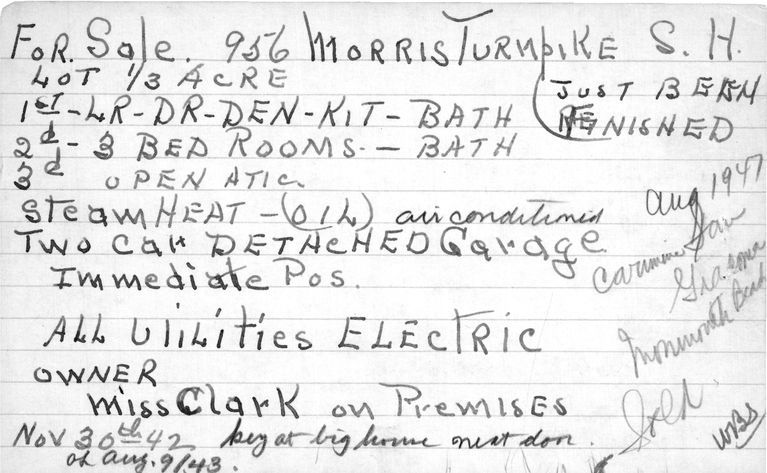 FOR. Sale. 956 MORRIS TURNPIKE S. H.
LOT 1/3 ACRE
JUST BEEN
FENISHED
1ST-LR-DR-DEN-KIT-BATH
2d-3 BED ROOMS-BATH
3d OPEN ATIC
Steam HEAT-(OIL) airconditioned
TWO Car DETACHED Garage
Immediate Pos.
ALL Utilities ELECTRIC
OWNER
Miss Clark on Premises
Nov 30th 42 key at big house next door.
of Aug. 9/43.
Aug 1947
Monmouth Beach
Sold
WBS